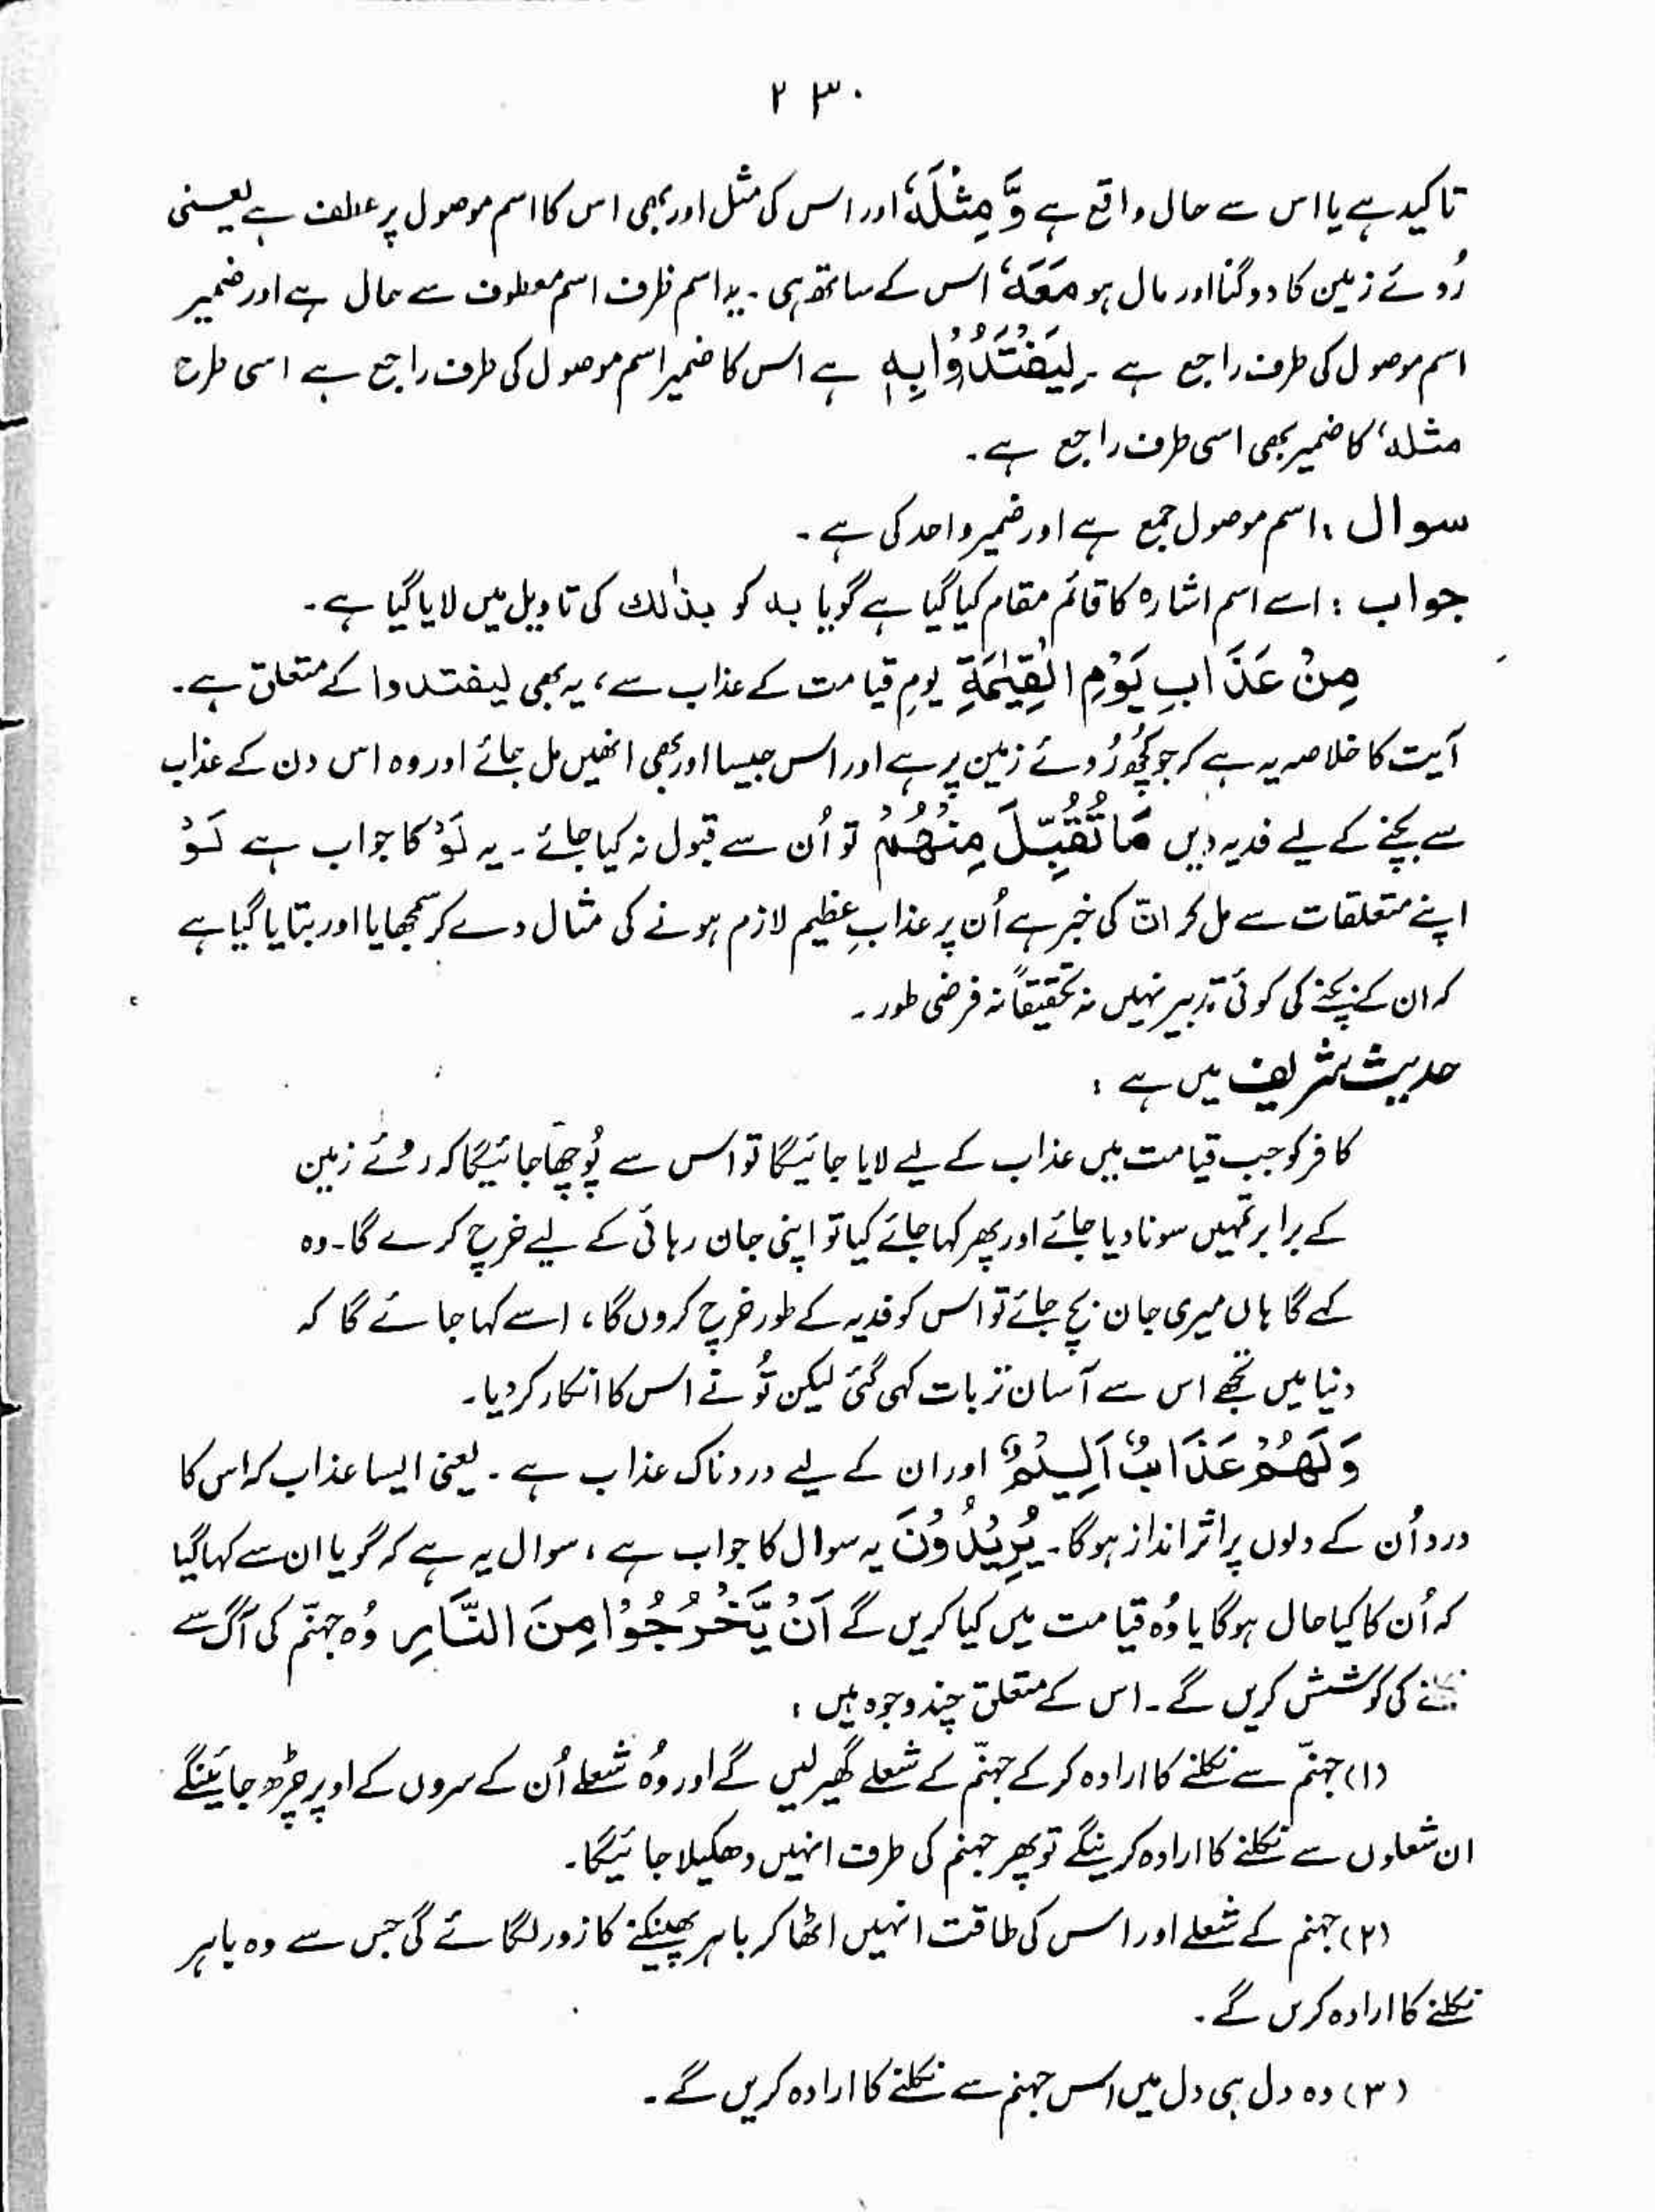 ۲۳۰
تاکید ہے یا اس سے حال واقع ہے وَّ مِثْلَهٗ اور اس کی مثل اور بھی اس کا اسم موصول پر عطف ہے یعنی
رُوئے زمین کا دوگنا اور مال ہو مَعَهٗ اس کے ساتھ ہی ۔ یہ اسم ظرف اسم معطوف سے حال ہے اور ضمیر
اسم موصول کی طرف راجع ہے ۔ لِيَفْتَدُوْا بِهٖ ہے اس کا ضمیر اسم موصول کی طرف راجع ہے اسی طرح
مثلہٗ کا ضمیر بھی اسی طرف راجع ہے ۔
سوال : اسم موصول جمع ہے اور ضمیر واحد کی ہے ۔
جواب : اسے اسم اشارہ کا قائم مقام کیا گیا ہے گویا بہ کو بذٰلک کی تاویل میں لایا گیا ہے ۔
مِنْ عَذَابِ يَوْمِ الْقِيٰمَةِ یومِ قیامت کے عذاب سے ، یہ بھی لیفتدوا کے متعلق ہے ۔
آیت کا خلاصہ یہ ہے کہ جو کچھ رُوئے زمین پر ہے اور اس جیسا اور بھی انھیں مل جائے اور وہ اس دن کے عذاب
سے بچنے کے لیے فدیہ دیں مَا تُقُبِّلَ مِنْهُمْ تو اُن سے قبول نہ کیا جائے ۔ یہ لَوْ کا جواب ہے لَوْ
اپنے متعلقات سے مل کر انّ کی خبر ہے اُن پر عذابِ عظیم لازم ہونے کی مثال دے کر سمجھایا اور بتایا گیا ہے
کہ ان کے بچنے کی کوئی تدبیر نہیں نہ تحقیقاً نہ فرضی طور ۔
حدیث شریف میں ہے :
کافر کو جب قیامت میں عذاب کے لیے لایا جائیگا تو اس سے پُوچھا جائیگا کہ روئے زمین
کے برابر تمہیں سونا دیا جائے اور پھر کہا جائے کیا تو اپنی جان رہائی کے لیے خرچ کرے گا ۔ وہ
کہے گا ہاں میری جان بچ جائے تو اس کو فدیہ کے طور خرچ کروں گا ، اسے کہا جائے گا کہ
دنیا میں تجھے اس سے آسان تر بات کہی گئی لیکن تُو نے اس کا انکار کر دیا ۔
وَلَهُمْ عَذَابٌ اَلِيْمٌ اور ان کے لیے دردناک عذاب ہے ۔ یعنی ایسا عذاب کہ اس کا
درد اُن کے دلوں پر اثر انداز ہوگا ۔ يُرِيْدُوْنَ یہ سوال کا جواب ہے ، سوال یہ ہے کہ گویا ان سے کہا گیا
کہ اُن کا کیا حال ہوگا یا وُہ قیامت میں کیا کریں گے اَنْ يَّخْرُجُوْا مِنَ النَّارِ وُہ جہنّم کی آگ سے
نکلنے کی کوشش کریں گے ۔ اس کے متعلق چند وجوہ ہیں :
(۱) جہنّم سے نکلنے کا ارادہ کر کے جہنّم کے شعلے گھیر لیں گے اور وُہ شعلے اُن کے سروں کے اوپر چڑھ جائینگے
ان شعلوں سے نکلنے کا ارادہ کرینگے تو پھر جہنم کی طرف انہیں دھکیلا جائیگا ۔
(۲) جہنم کے شعلے اور اس کی طاقت انہیں اٹھا کر باہر پھینکنے کا زور لگائے گی جس سے وہ باہر
نکلنے کا ارادہ کریں گے ۔
(۳) وہ دل ہی دل میں اس جہنم سے نکلنے کا ارادہ کریں گے ۔